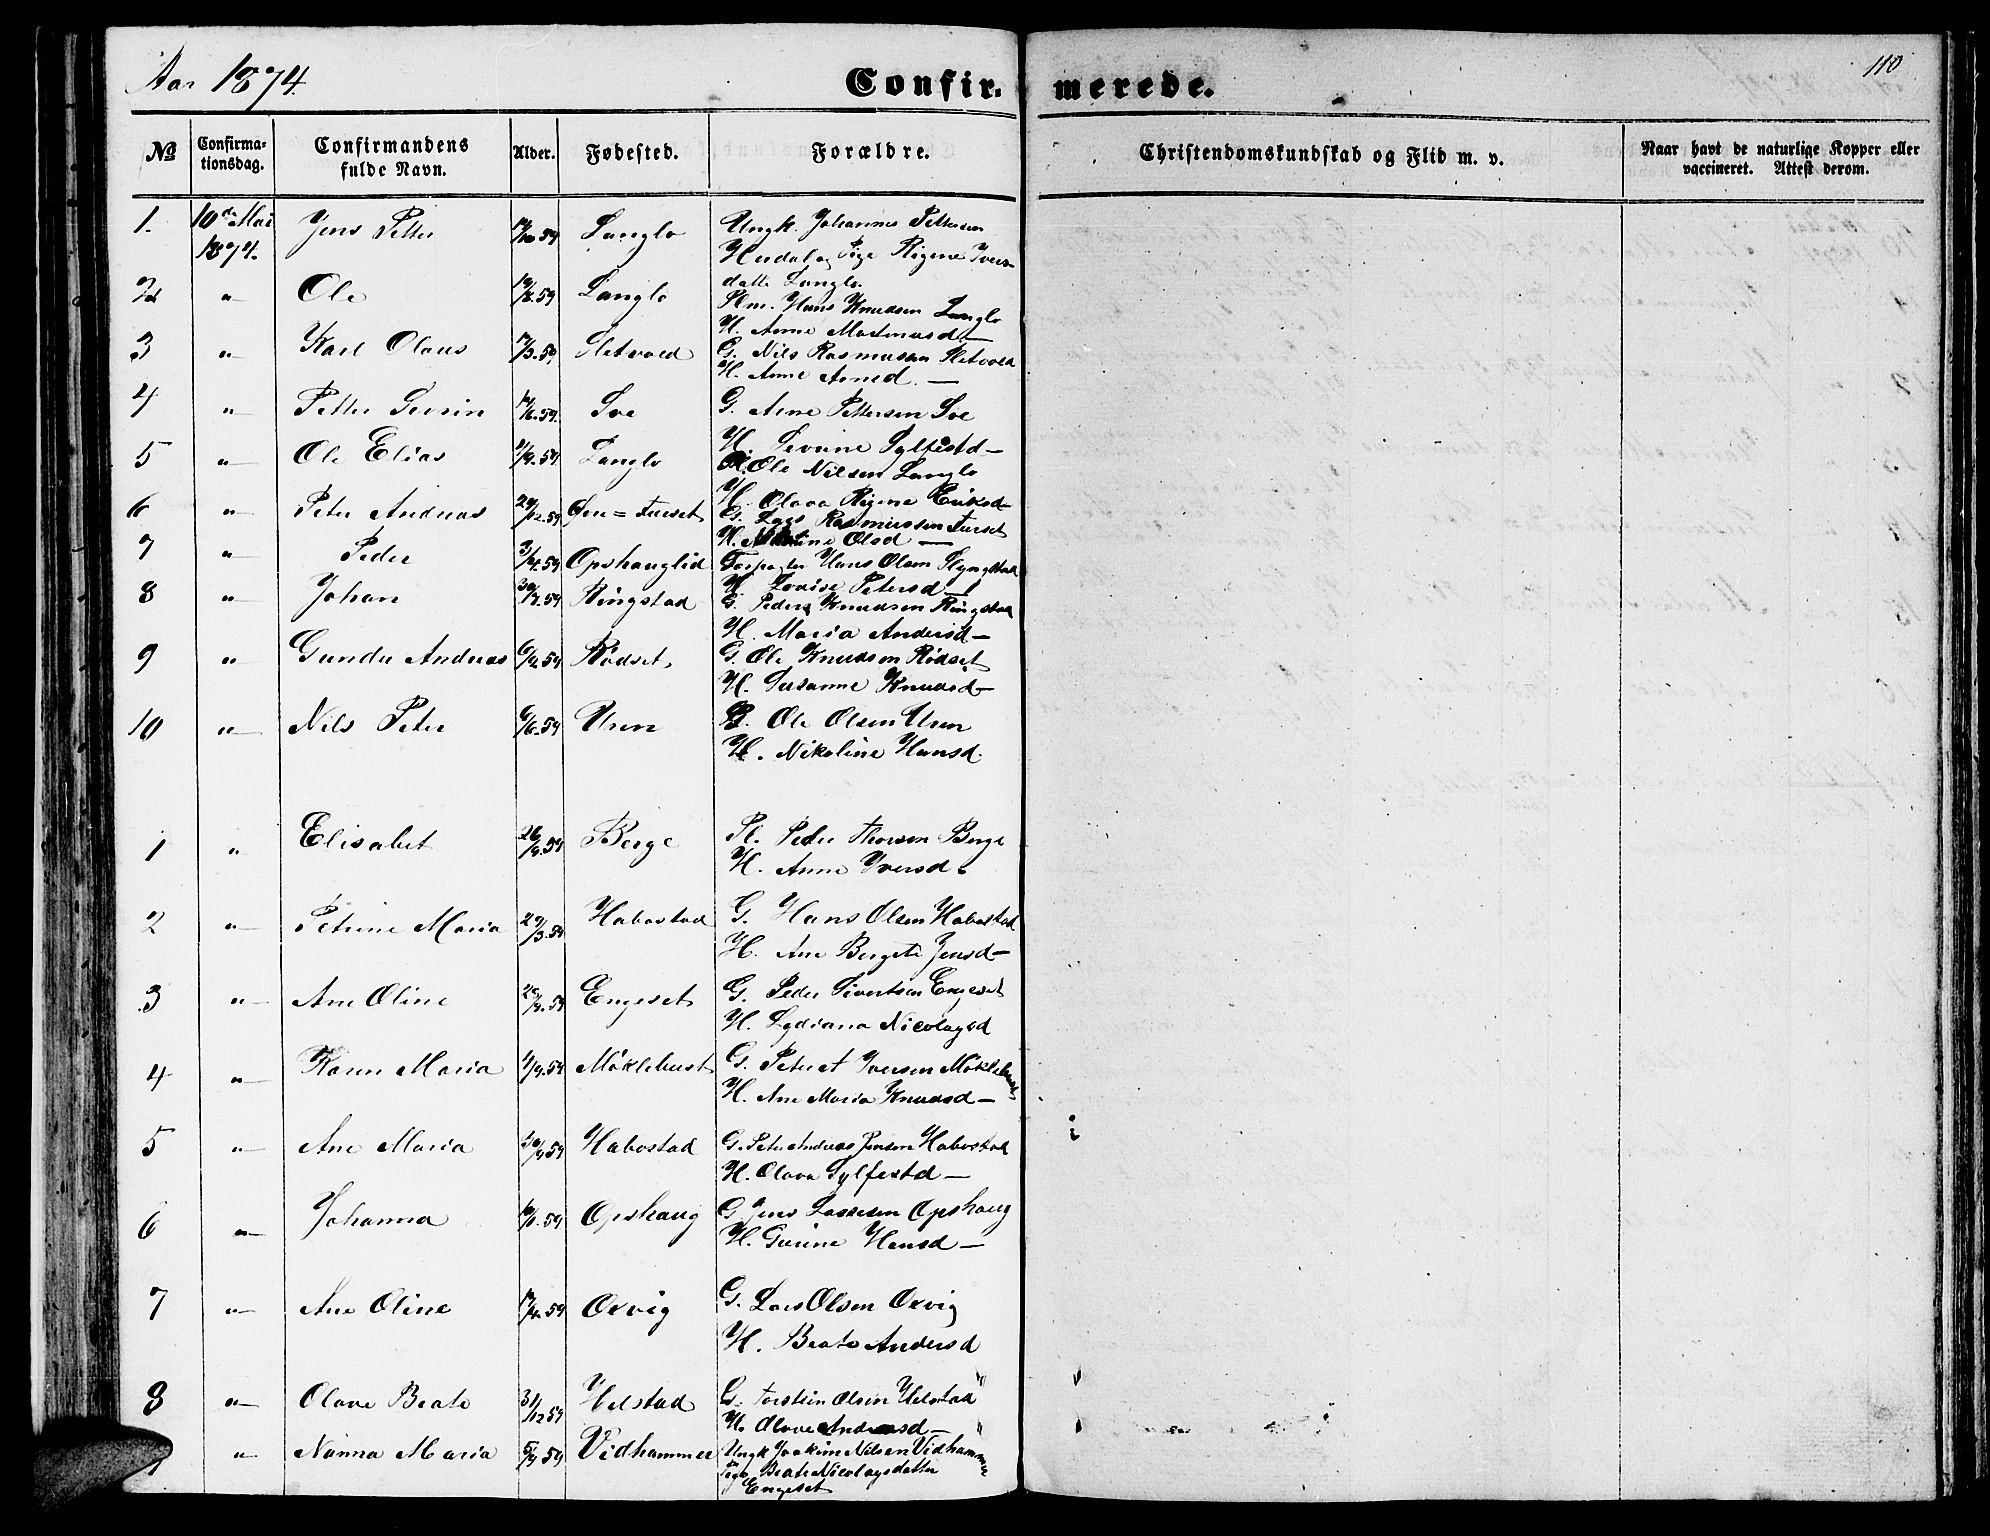 Aar 1874.
Confirmerede.
110
No
Confirmationsdag.
Confirmandens fulde Navn.
Alder.
Fødested.
Forældre.
Christendomskundskab og Flid m. v.
Naar havt de naturlige Kopper eller vaccineret. Attest derom.
1. 10de Mai 1874. Jens Petter 59 Langlo Ungk. Johannes Pettersen
Pige Regine Ivers
datter Langlo
2 " Ole 59 Langlo Plm. Hans Knudsen Langlo
H. Anne Martinusd —
3 " Karl Olaus 59 Sletvold G. Nils Rasmussen Sletvold
H. Anne Arned. —
4 " Petter 59. Soe G. Arne Pettersen Soe
H. Sevrine Sylfestd —
5 " Ole Elias 59 Langlo Ole Nilsen Langlo
H. Olava Regine Eriksd —
6 " Peter Andreas 29/12 59 Furset G. Lars Rasmussen Furset
H. Olsd —
7 " Peder 3/4 59 Opshauglid Forpagter Hans Olsen Slyngstad
H. Lovise Petersd —
8 " Johan 59 Ringstad G. Peder Knudsen Ringstad
H. Maria Andersd —
9 " Gunder Andreas 6/12 59 Rødset G. Ole Knudsen Rødset
H. Susanne Knudsd —
10 " Nils Peter 6/6 59 Uren Ole Olsen Uren
H. Nikoline Hansd.
1 " Elisabet 26/9 59 Berge Pl. Peder Thorsen Berge
H. Anne Iversd
2 " Petrine Maria 29/3 59 Habostad G. Hans Olsen Habostad
H. Ane Bergete Jensd —
3 " Ane Oline 59 Engeset G. Peder Sivertsen Engeset
H. Lydiana Nicolaysd
4 " Karen Maria 59 Møklebust G. Peter A Iversen Møklebust
H. Ane Maria Knudsd —
5 " Ane Maria 30/9 59 Habostad G. Peter Andreas Jensen Habostad
H. Olava Sylfestd —
6 " Johanna 59 Opshaug G Jens Lassesen Opshaug
H. Gurine Hansd —
7 " Ane Oline 59 Oxvig G. Lars Olsen Oxvig
H. Beate Andersd
8 " Olave Beate 31/12 59 Helstad G. Torstein Olsen Helstad
H. Olave Andersd —
" Nanna Maria 5/9 59 Vidhammer Ungk Joakim Nilsen Vidhammer
Pige Beate Nicolaysdatter
Engeset